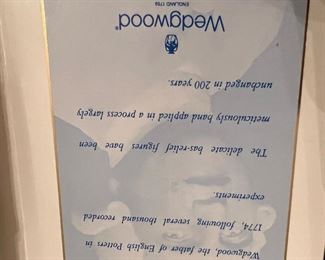 Wedgwood, the father of English Potters in
1774, following several thousand recorded
experiments.
The delicate bas-relief figures have been
meticulously hand applied in a process largely
unchanged in 200 years.
Wedgwood®
ENGLAND 1759